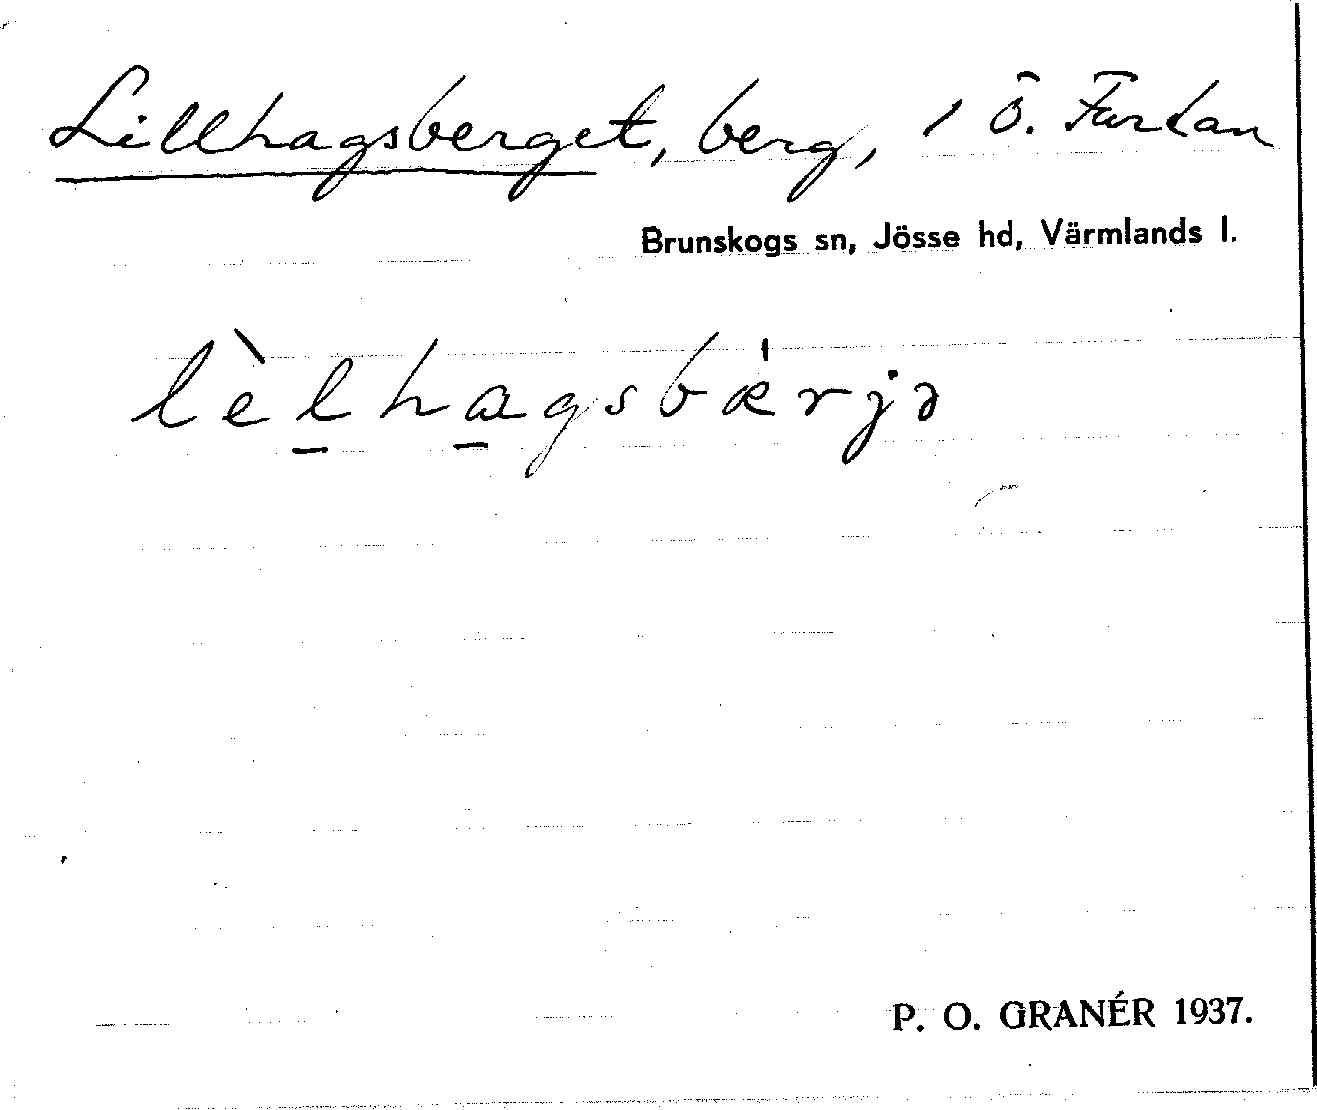 Lillhagsberget, berg, i Ö. Furtan
Brunskogs sn, Jösse hd, Värmlands l.
lèlhagsbærjə
P. O. GRANÉR 1937.